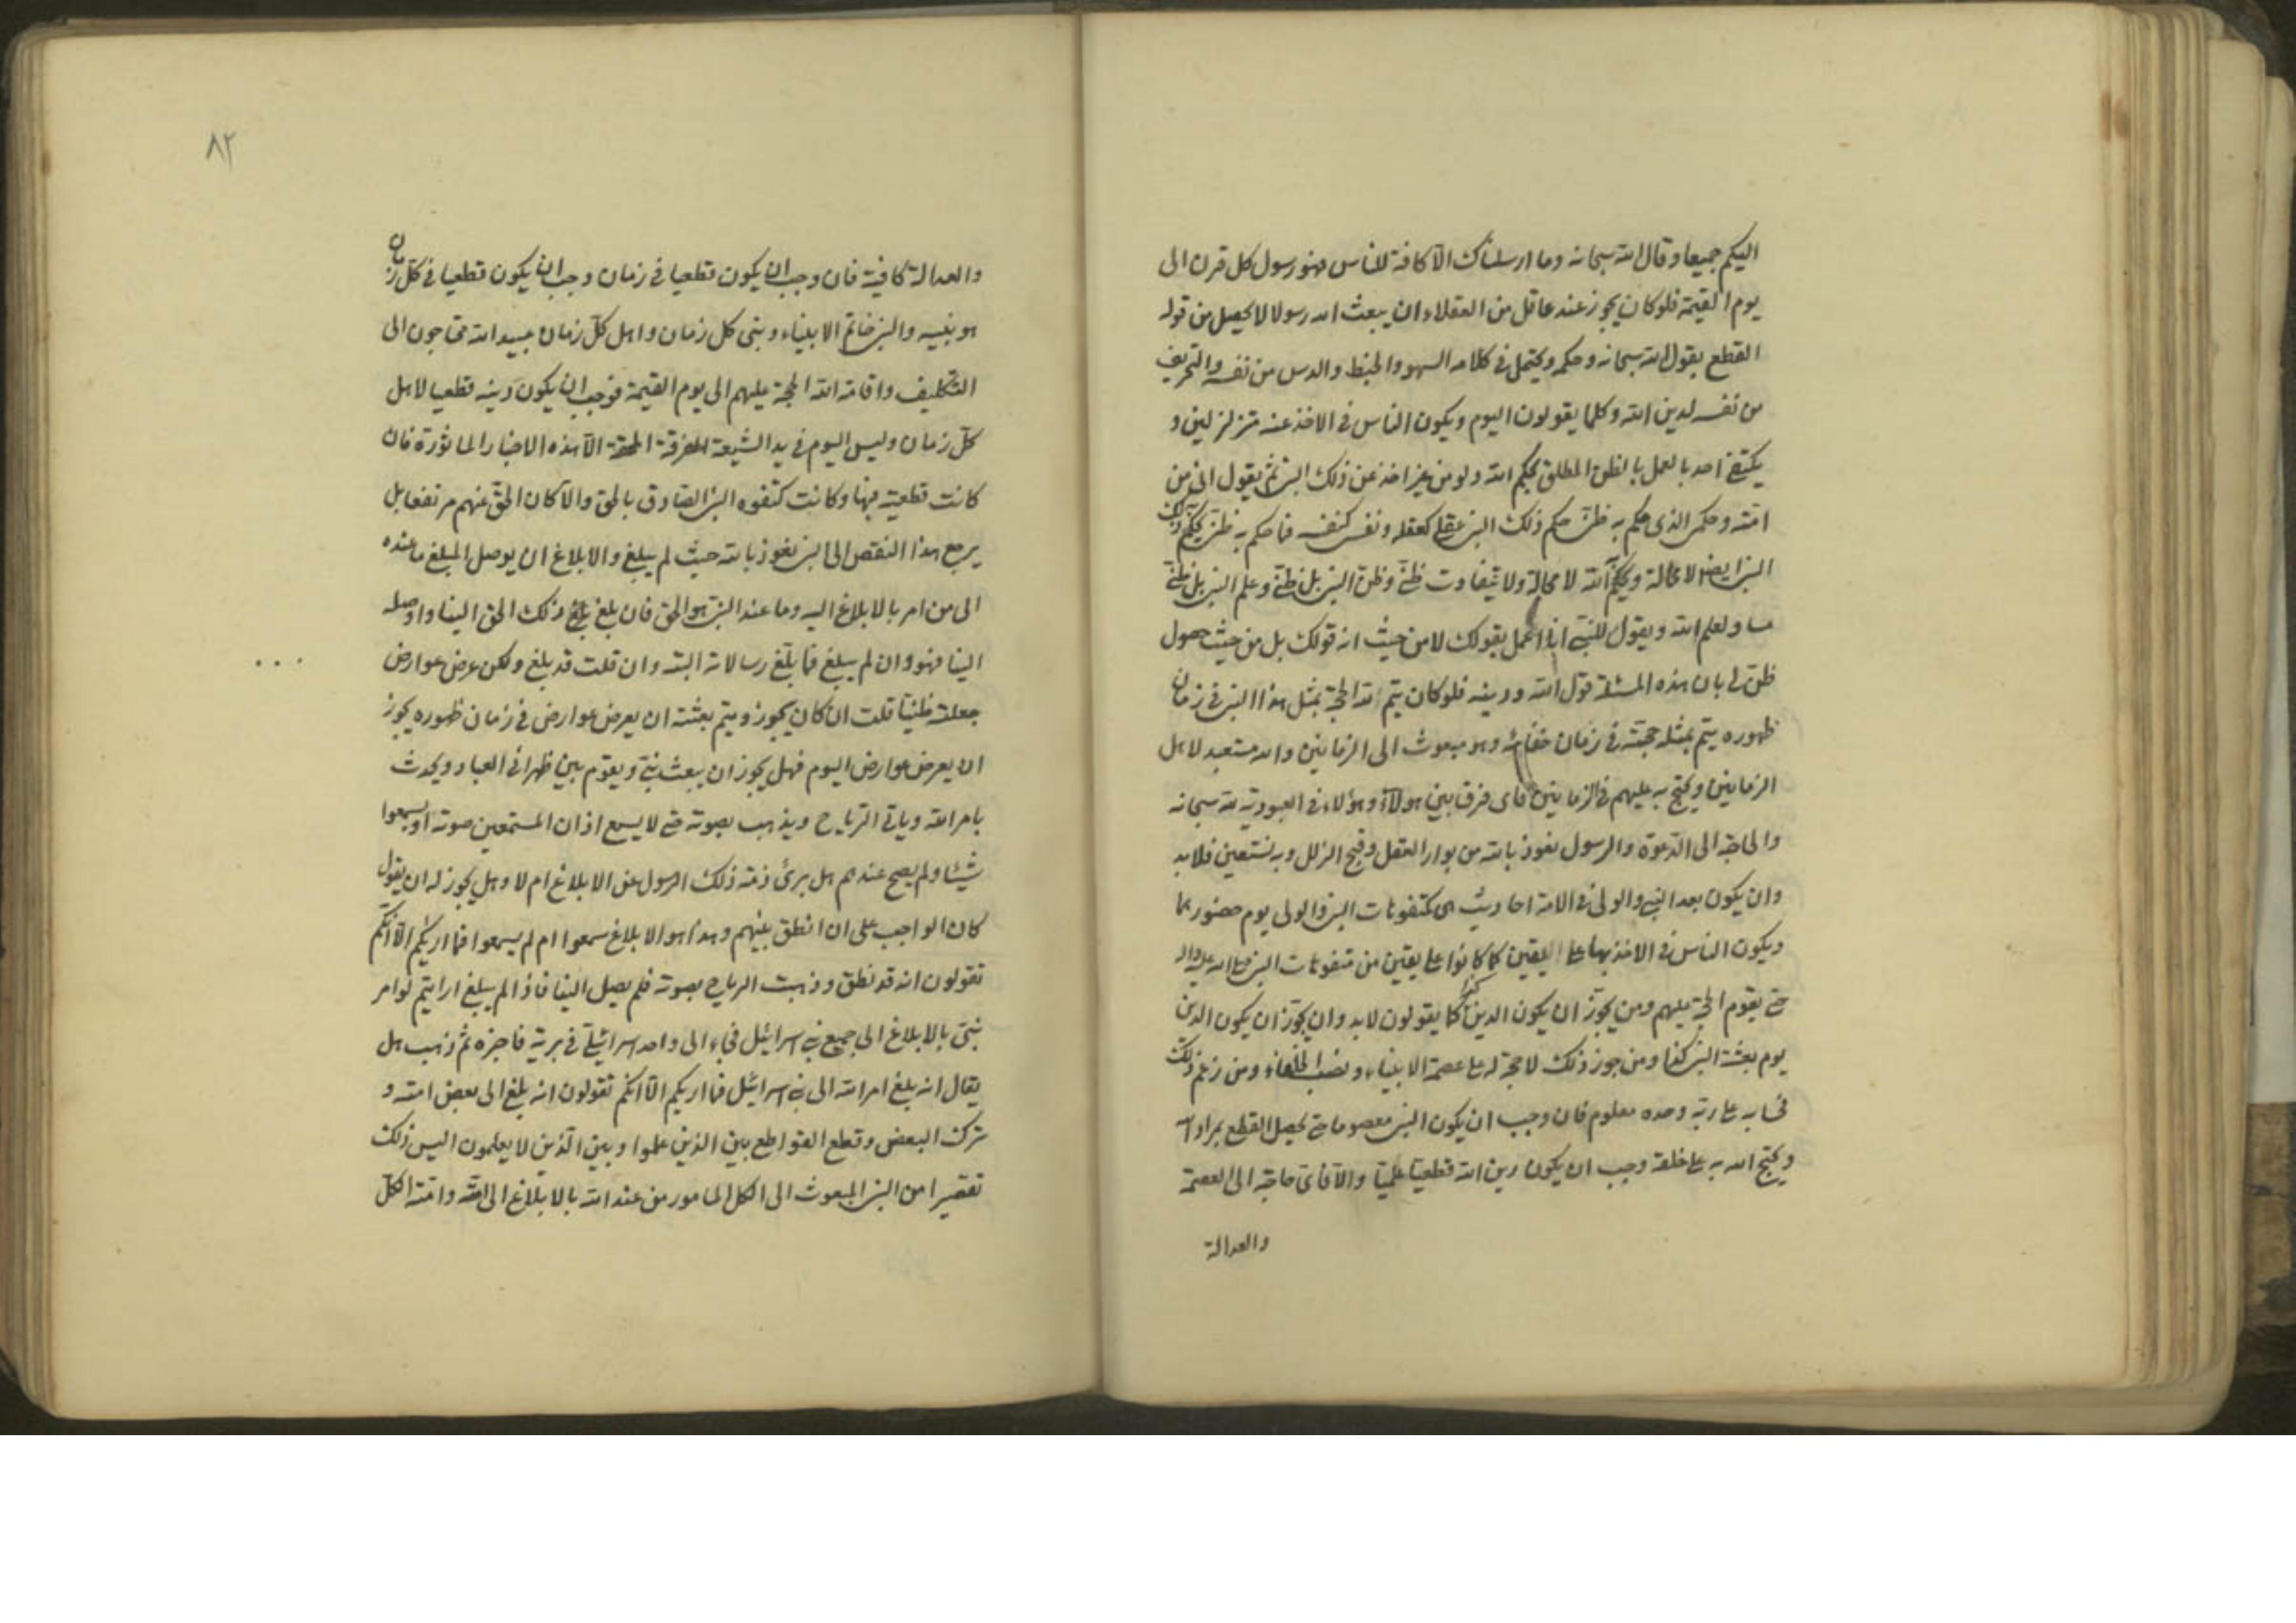 اليكم جميعا وقال الله سبحانه وما ارسلناك الا كافة للناس فهو رسول كل قرن الى
يوم القيمة فلو كان يجوز عند عاقل من العقلاء ان يبعث الله رسولا لا يحصل من قوله
القطع بقول الله سبحانه وحكمه ويحتمل في كلامه السهو والخبط والدس من نفسه والتحريف
من نفسه لدين الله وكلما يقولون اليوم ويكون الناس في الاخذ عنه متزلزلين و
يكتفي احد بالعمل بالظن المطلق بحكم الله ولو من غير اخذ عن ذلك النبي ثم يقول اني من
امته وحكمي الذي حكم به ظني حكم ذلك النبي عقلي كعقله ونفسي كنفسه فما حكم به ظني يحكم ذلك
النبي ايضا لا محالة ويحكم الله لا محالة ولا يتفاوت ظني وظن النبي بل ظني وعلم النبي بل ظني
مساو لعلم الله ويقول للنبي اني اعمل بقولك لا من حيث انه قولك بل من حيث حصول
ظن لي بان هذه المسئلة قول الله ودينه فلو كان يتم لله الحجة بمثل هذا النبي في زمان
ظهوره يتم بمثله حجته في زمان خفائه وهو مبعوث الى الزمانين والله مستعبد لاهل
الزمانين ويحتج به عليهم في الزمانين فاى فرق بين هولآء وهؤلاء في العبودية لله سبحانه
والحاجة الى الدعوة والرسول نعوذ بالله من بوار العقل وقبح الزلل وبه نستعين فلابد
وان يكون بعد النبي والولي في الامة احاديث هى كتفوهات النبي والولى يوم حضورهما
ويكون الناس في الاخذ بها على اليقين كما كانوا على يقين من تفوهات النبي صلى الله عليه واله
حتى يقوم الحجة عليهم ومن يجوز ان يكون الدين كذا كما يقولون لابد وان يجوز ان يكون الدين
يوم بعثة النبي كذا ومن جوز ذلك لا حجة له على عصمة الانبياء ونصب الخلفاء ومن زعم ذلك
فحسابه على ربه وحده معلوم فان وجب ان يكون النبي معصوما حتى يحصل القطع بمراد الله
ويحتج الله به على خلقه وجب ان يكون دين الله قطعيا علميا والا فاى حاجة الى العصمة
والعدالة
٨٢
والعدالة كافية فان وجب ان يكون قطعيا في زمان وجب ان يكون قطعيا في كل زمان
هو نبيه والنبي خاتم الانبياء ونبى كل زمان واهل كل زمان عبيد الله محتاجون الى
التكليف واقامة الله الحجة عليهم الى يوم القيمة فوجب ان يكون دينه قطعيا لاهل
كل زمان وليس اليوم في يد الشيعة الفرقة المحقة الا هذه الاخبار الماثورة فان
كانت قطعية فبها وكانت كتفوه النبي الصادق بالحق والا كان الحق عنهم مرتفعا بل
يرجع هذا النقص الى النبي نعوذ بالله حيث لم يبلغ والابلاغ ان يوصل المبلغ ما عنده
الى من امر بالابلاغ اليه وما عند النبي هو الحق فان بلغ بلغ ذلك الحق الينا واوصله
الينا فهو وان لم يبلغ فما بلغ رسالاته البتة وان قلت قد بلغ ولكن عرض عوارض
جعلته ظنيا قلت ان كان يجوز ويتم بعثته ان يعرض عوارض في زمان ظهوره يجوز
ان يعرض عوارض اليوم فهل يجوز ان يبعث نبي ويقوم بين ظهراني العباد ويحدث
بامر الله وياتي الرياح ويذهب بصوته حتى لا يسمع اذان المستمعين صوته او يسمعوا
شيئا ولم يصح عندهم هل برئ ذمة ذلك الرسول عن الابلاغ ام لا وهل يجوز له ان يقول
كان الواجب على ان انطق بينهم وهذا هو الابلاغ سمعوا ام لم يسمعوا فما اريكم الا انكم
تقولون انه قد نطق وذهبت الرياح بصوته فلم يصل الينا فاذا لم يبلغ ارايتم لو امر
نبي بالابلاغ الى جميع بني اسرائيل فجاء الى واحد اسرائيلي في برية فاخبره ثم ذهب هل
يقال انه بلغ امر الله الى بني اسرائيل فما اريكم الا انكم تقولون انه بلغ الى بعض امته و
ترك البعض وقطع القواطع بين الذين علموا وبين الذين لا يعلمون اليس ذلك
تقصيرا من النبي المبعوث الى الكل المامور من عند الله بالابلاغ الى امته وامته الكل